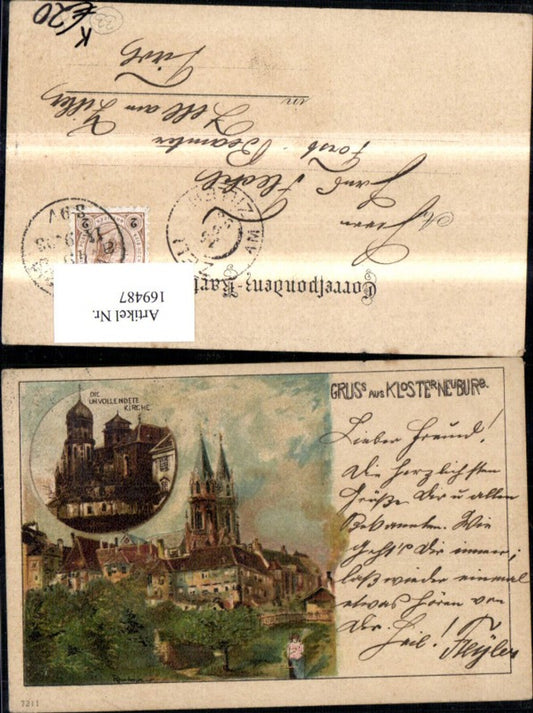 K €20
22
Correspondenz-Kart
Herrn
Forst-Beamter
Zell am Ziller
in
Tirol
ZELL AM ZILLER
2 2
Artikel Nr.
169487
GRUSS AUS KLOSTERNEUBURG.
DIE
UNVOLLENDETE
KIRCHE.
Lieber Freund!
Die herzlichsten
Grüße Dir u allen
Bekannten. Wie
geht's Dir immer;
laß wieder einmal
etwas hören von
Dir. Heil!
7211